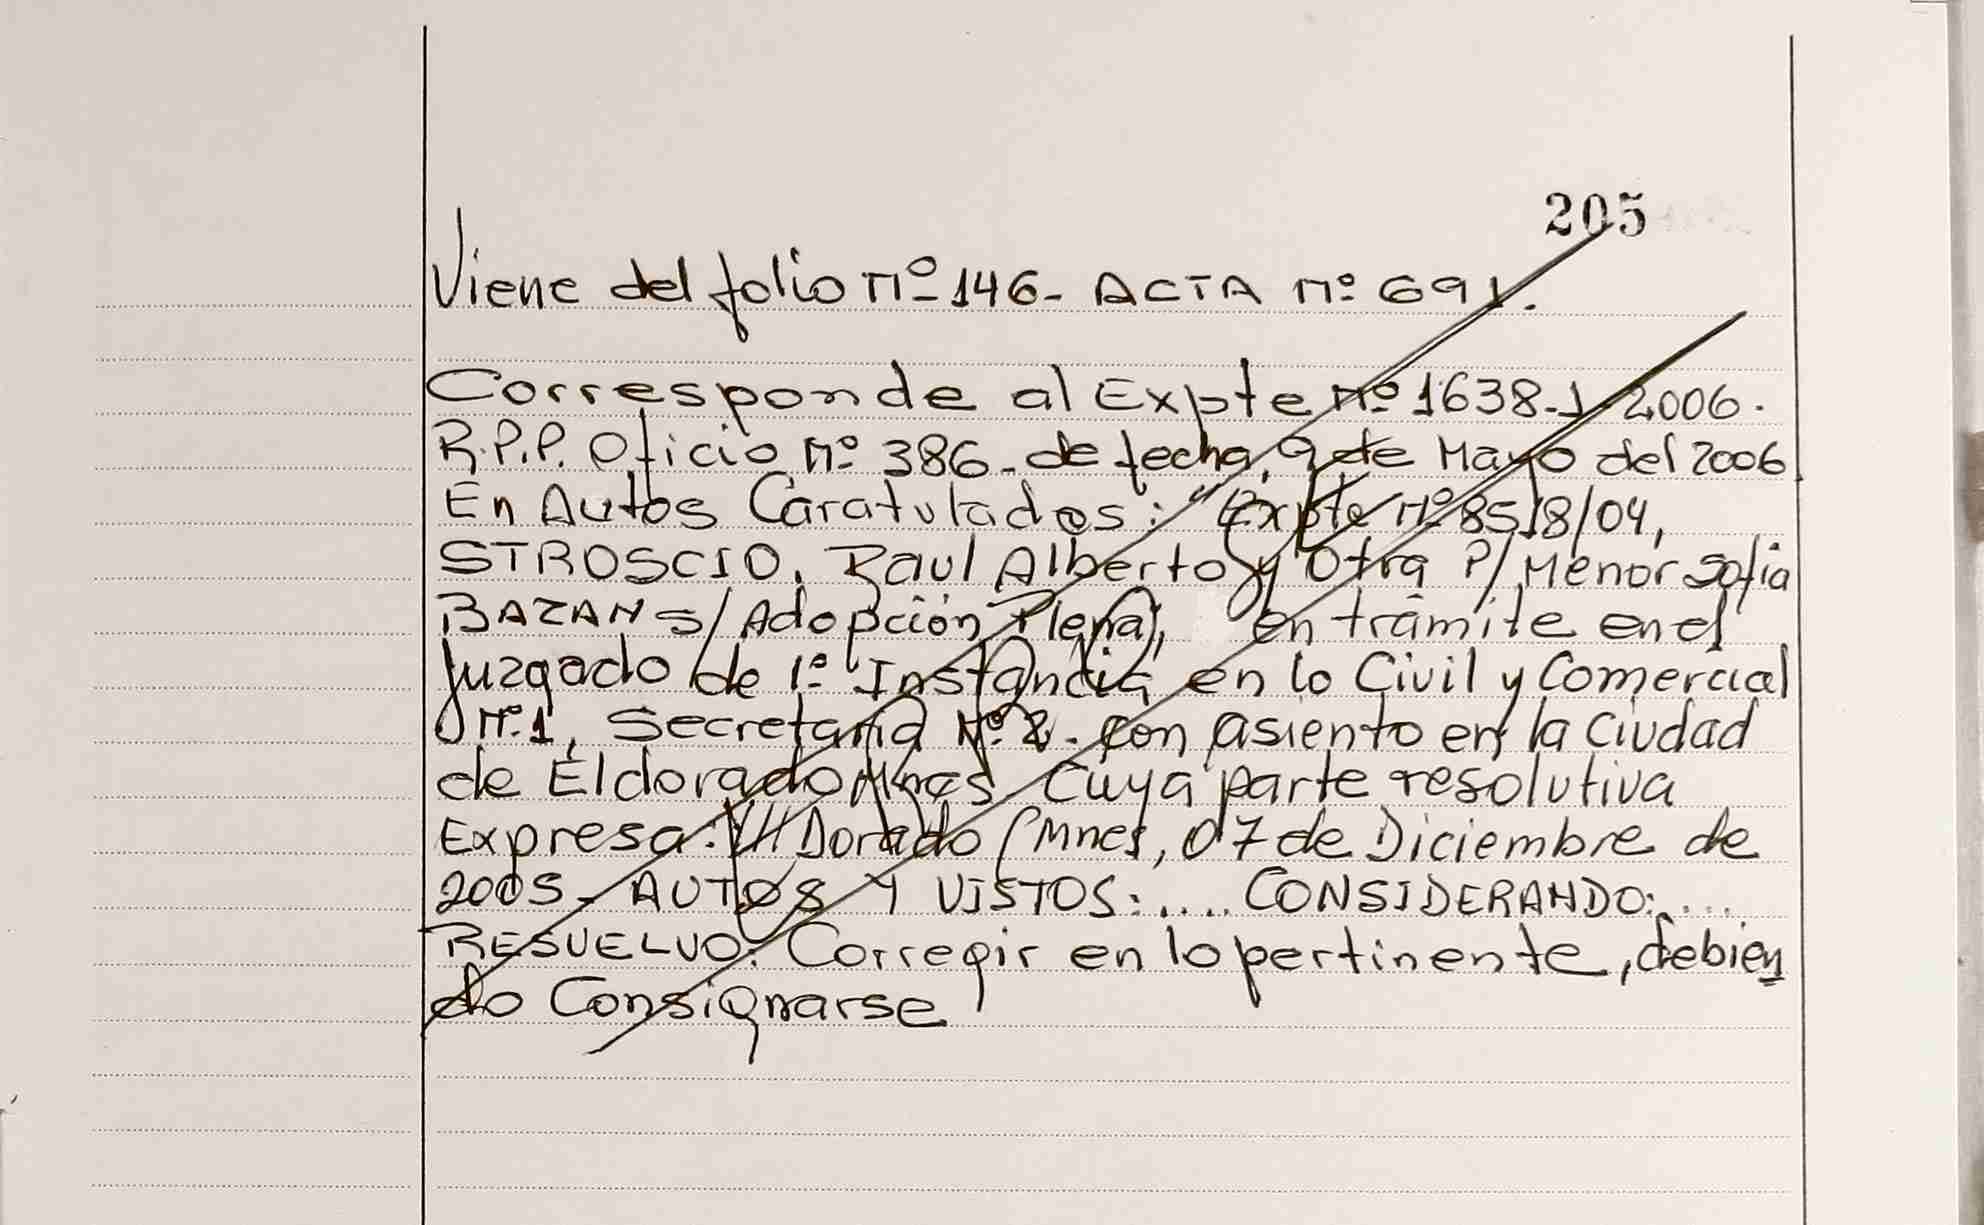 205
Viene del folio Nº 146- ACTA Nº 691.
Corresponde al Expte Nº 1638-J-2006.
R.P.P. Oficio Nº 386- de fecha, 9 de Mayo del 2006
En Autos Caratulados: "Expte Nº 8518/04,
STROSCIO, Raul Alberto y Otra P/ Menor Sofia
BAZAN S/ Adopción Plena), en trámite en el
Juzgado de 1º Instancia en lo Civil y Comercial
Nº 1, Secretaria Nº 2. con asiento en la Ciudad
de Eldorado Mnes Cuya parte resolutiva
Expresa: Dorado (Mnes, 07 de Diciembre de
2005- AUTOS Y VISTOS:.... CONSIDERANDO:....
RESUELVO: Corregir en lo pertinente, debien
do Consignarse